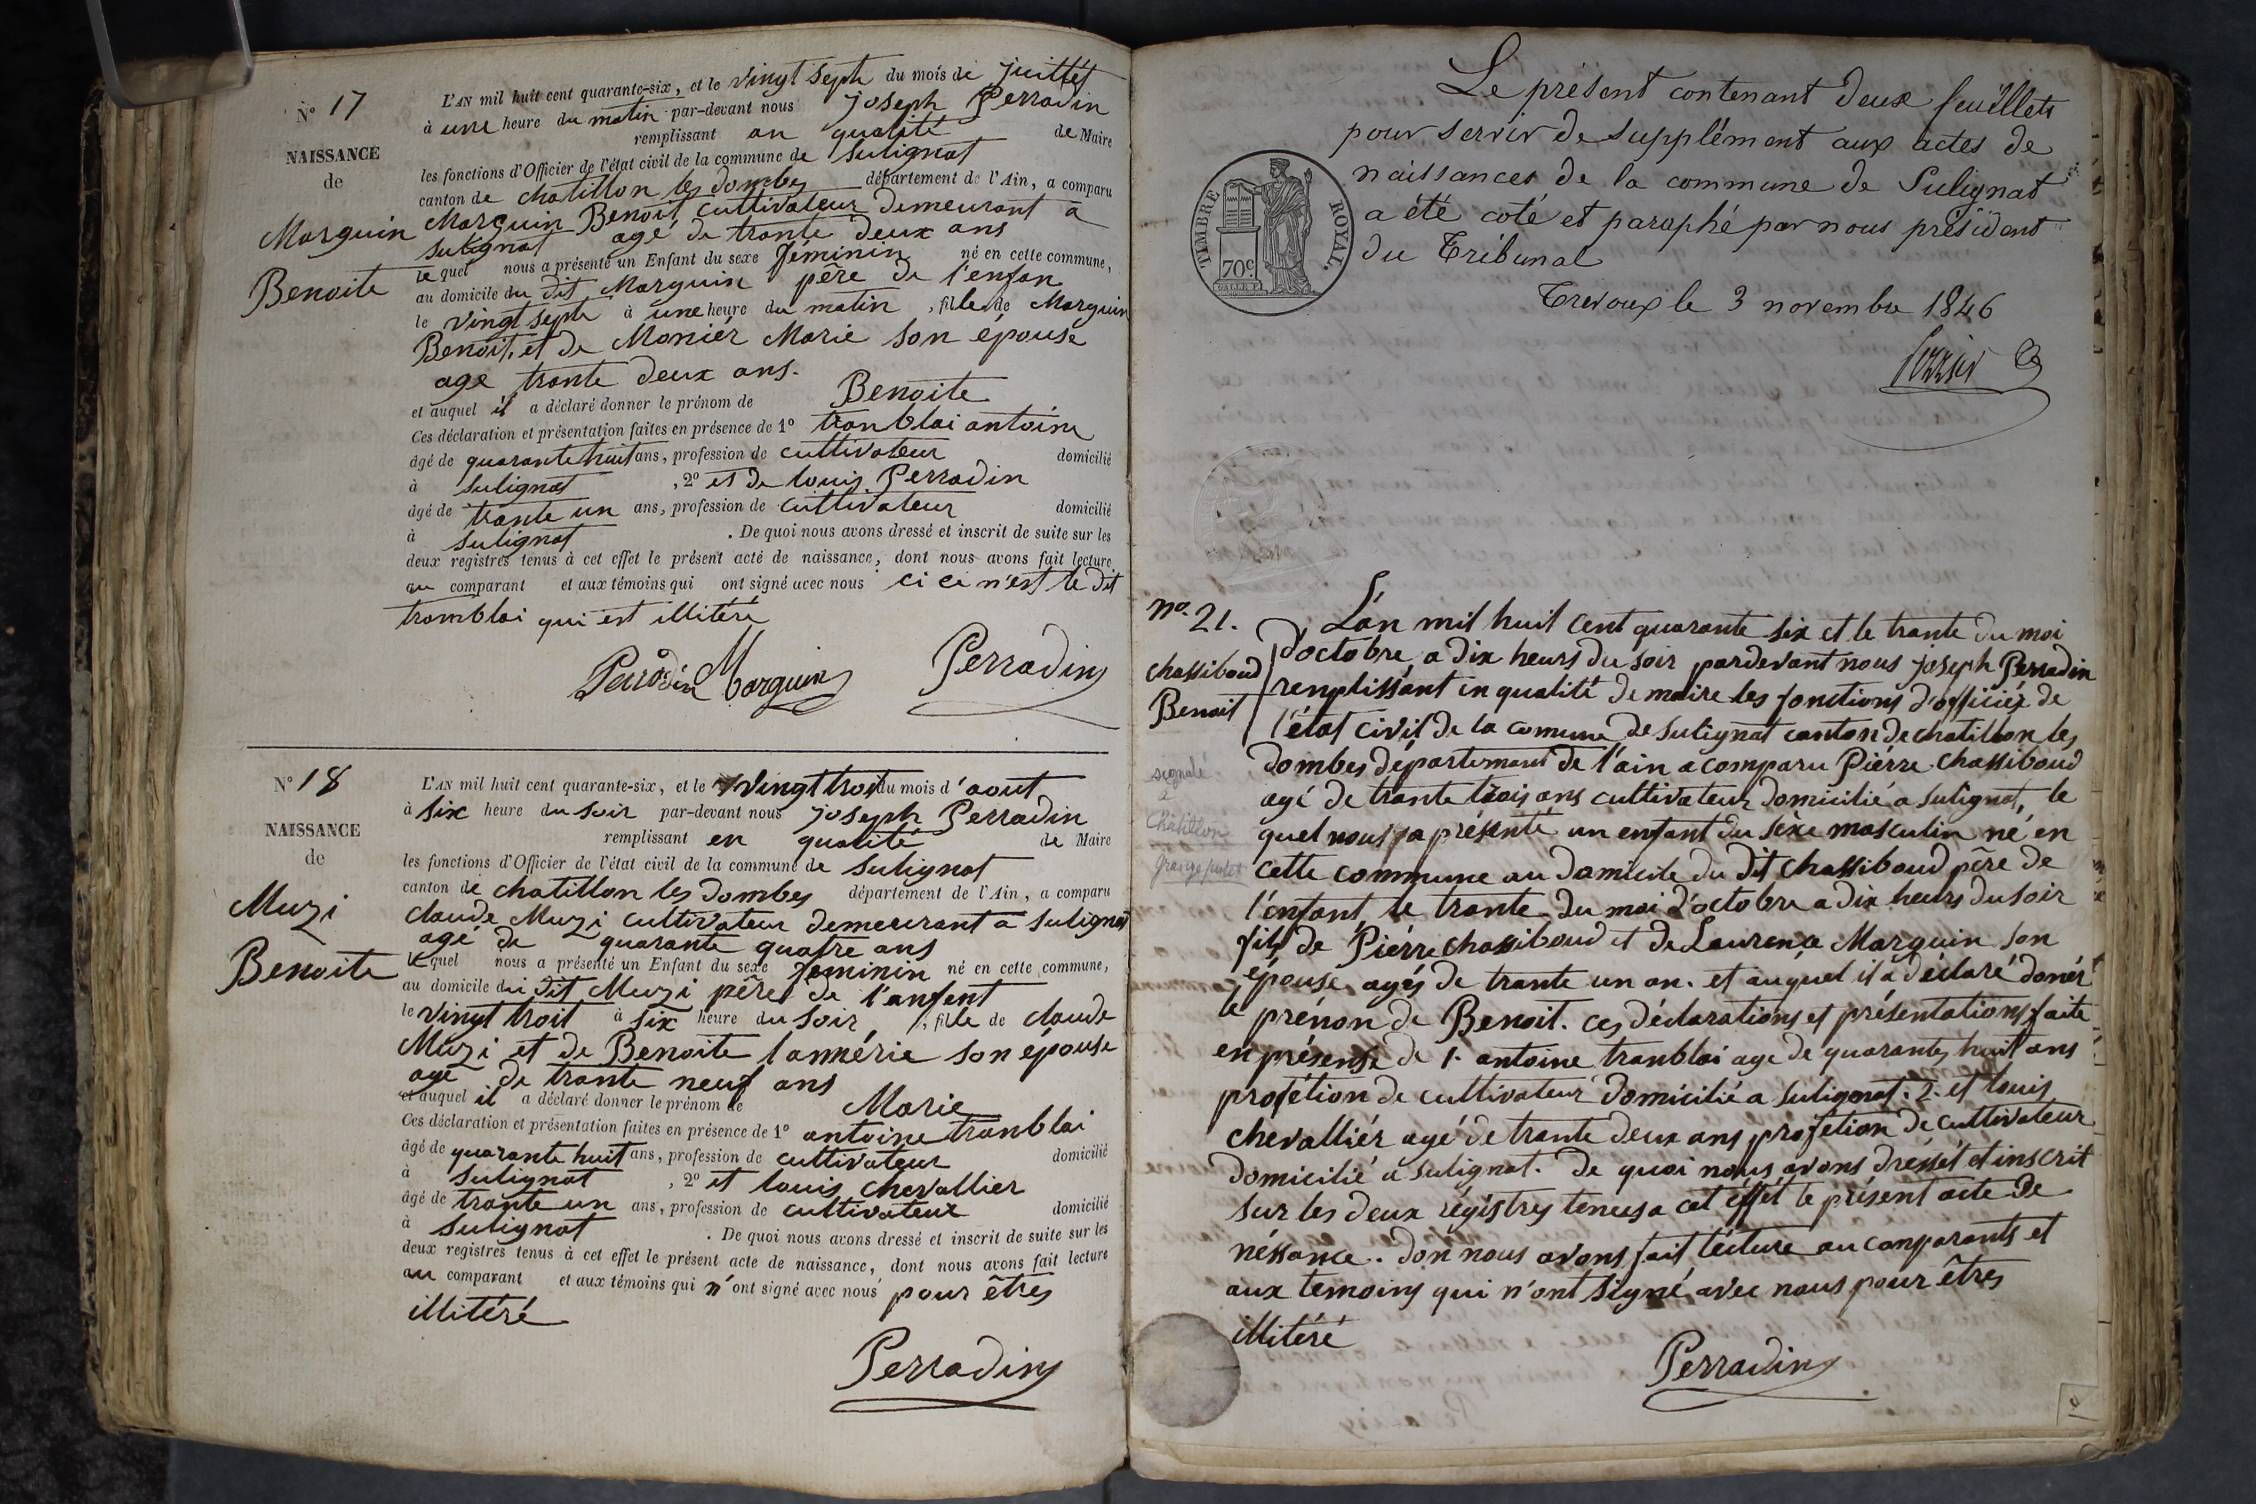 N° 17
NAISSANCE
de
Marguin
Benoite
L'AN mil huit cent quarante-six, et le vingt septe du mois de juillet
à une heure du matin par-devant nous joseph Perradin
remplissant en qualité de Maire
les fonctions d'Officier de l'état civil de la commune de Sulignat
canton de chatillon les dombes département de l'Ain, a comparu
Marguin Benoit cultivateur demeurant a
Sulignat agé de trante deux ans
le quel nous a présenté un Enfant du sexe féminin né en cette commune,
au domicile du dit Marguin père de l'enfan
le vingt septe à une heure du matin, fille de Marguin
Benoit, et de Moniér Marie son épouse
age trante deux ans.
et auquel il a déclaré donner le prénom de Benoite
Ces déclaration et présentation faites en présence de 1° tranblai antoine
âgé de quarante huit ans, profession de cultivateur domicilié
à Sulignat, 2° et de louis Perradin
âgé de trante un ans, profession de cultivateur domicilié
à Sulignat. De quoi nous avons dressé et inscrit de suite sur les
deux registres tenus à cet effet le présent acte de naissance, dont nous avons fait lecture
au comparant et aux témoins qui ont signé avec nous ci ci n'est le dit
tramblai qui est illitéré
Perradin Marguin Perradin
N° 18
NAISSANCE
de
Muzi
Benoite
L'AN mil huit cent quarante-six, et le vingt troit du mois d'aout
à six heure du soir par-devant nous joseph Perradin
remplissant en qualité de Maire
les fonctions d'Officier de l'état civil de la commune de Sulignat
canton de chatillon les dombes département de l'Ain, a comparu
claude Muzi cultivateur demeurant a Sulignat
agé de quarante quatre ans
le quel nous a présenté un Enfant du sexe féminin né en cette commune,
au domicile du dit Muzi père de l'anfent
le vingt troit à six heure du soir, fille de claude
Muzi et de Benoite lannérie son épouse
age de trante neuf ans
et auquel il a déclaré donner le prénom de Marie
Ces déclaration et présentation faites en présence de 1° antoine tranblai
âgé de quarante huit ans, profession de cultivateur domicilié
à Sulignat, 2° et louis chevallier
âgé de trante un ans, profession de cultivateur domicilié
à Sulignat. De quoi nous avons dressé et inscrit de suite sur les
deux registres tenus à cet effet le présent acte de naissance, dont nous avons fait lecture
au comparant et aux témoins qui n'ont signé avec nous pour êtres
illitéré
Perradin
Le présent contenant deux feuillets
pour servir de supplément aux actes de
naissances de la commune de Sulignat
a été coté et paraphé par nous président
du Tribunal
Trevoux le 3 novembre 1846
TIMBRE ROYAL.
70c.
n°. 21.
chassibaud
Benoit
signalé
à
Chatillon
L'an mil huit cent quarante six et le trante du moi
d'octobre a dix heurs du soir pardevant nous joseph Perradin
remplissant en qualité de maire les fonctions d'officiér de
l'état civil de la comune de Sulignat canton de chatillon les
dombes département de l'ain a comparu Piérre chassibaud
agé de trante trois ans cultivateur domicilié a Sulignat, le
quel nous a présenté un enfant du sèxe masculin né en
cette commune au domicile du dit chassibaud père de
l'enfant le trante du moi d'octobre a dix heurs du soir
fils de Piérre chassibaud et de Laurence Marguin son
épouse agés de trante un an. et auquel il a déclaré donér
le prénon de Benoit. ces déclarations et présentations faite
en présense de 1. antoine tranblai age de quarante huit ans
profétion de cultivateur domicilié a Sulignat. 2. et louis
chevalliér agé de trante deux ans profetion de cultivateur
domicilié a Sulignat. De quoi nous avons dréssét et inscrit
sur les deux régistres tenus a cet éffét le présent acte de
néssance. don nous avons fait lécture au comparants et
aux temoins qui n'ont signé avec nous pour êtres
illitéré
Perradin